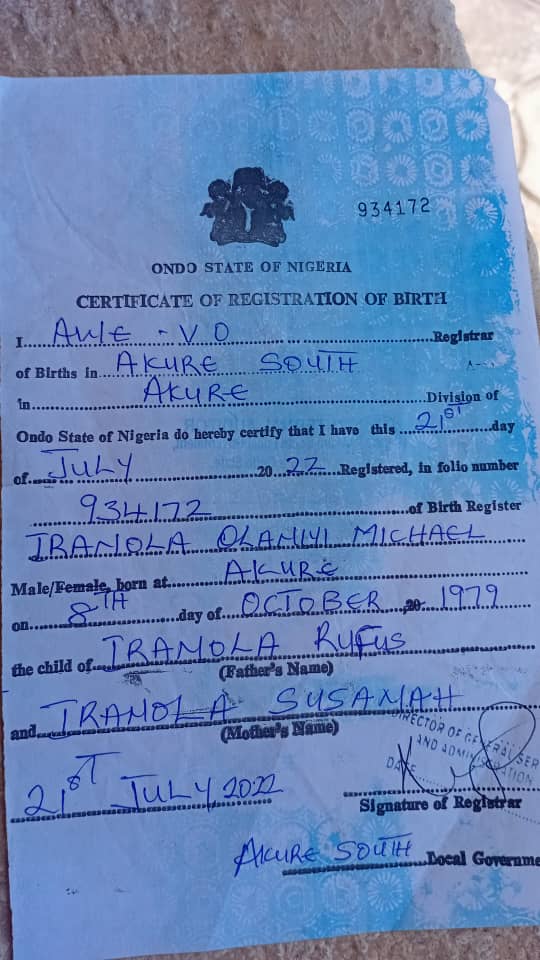 934172
ONDO STATE OF NIGERIA
CERTIFICATE OF REGISTRATION OF BIRTH
I AWE - V O Registrar
of Births in AKURE SOUTH
in AKURE Division of
Ondo State of Nigeria do hereby certify that I have this 21ST day
of JULY 20 22 Registered, in folio number
934172 of Birth Register
IRANOLA OLANIYI MICHAEL
Male/Female, born at AKURE
on 8TH day of OCTOBER 20 1979
the child of IRANOLA RUFUS
(Father's Name)
and IRANOLA SUSANAH
(Mother's Name)
DIRECTOR OF GENERAL SER
AND ADMINISTRATION
DATE
21ST JULY 2022
Signature of Registrar
AKURE SOUTH Local Governme